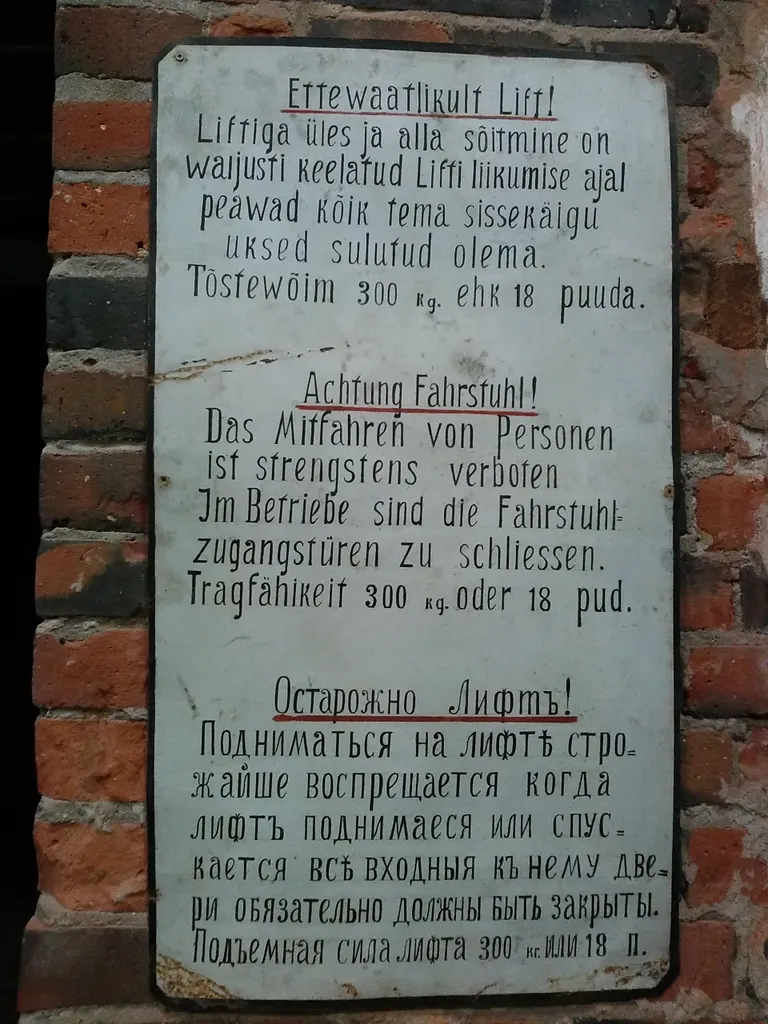 Ettewaatlikult Lift!
Liftiga üles ja alla sõitmine on
waljusti keelatud Lifti liikumise ajal
peawad kõik tema sissekäigu
uksed sulutud olema.
Tõstewõim 300 kg. ehk 18 puuda.
Achtung Fahrstuhl!
Das Mitfahren von Personen
ist strengstens verboten
Im Betriebe sind die Fahrstuhl=
zugangstüren zu schliessen.
Tragfähikeit 300 kg. oder 18 pud.
Остарожно Лифтъ!
Подниматься на лифтѣ стро=
жайше воспрещается когда
лифтъ поднимаеся или спус=
кается всѣ входныя къ нему две=
ри обязательно должны быть закрыты.
Подъемная сила лифта 300 кг. или 18 п.